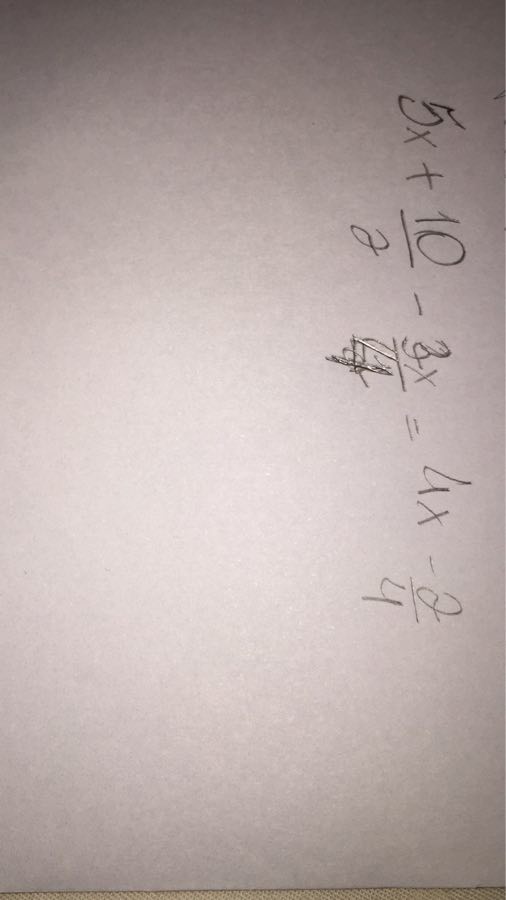 5x + 10/2 - 3x/ = 4x - 2/4